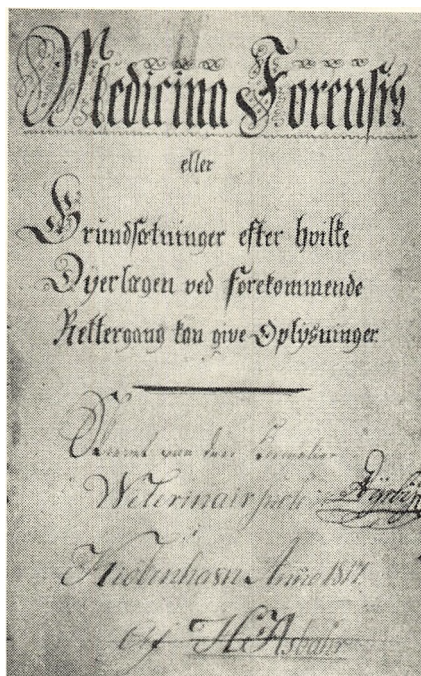 Medicina Forensis
eller
Grundsætninger efter hvilke
Dyerlægen ved forekommende
Rettergang kan give Oplysninger.
den
Veterinair
Kiøbenhavn Anno 1817
Af H. Asbahr